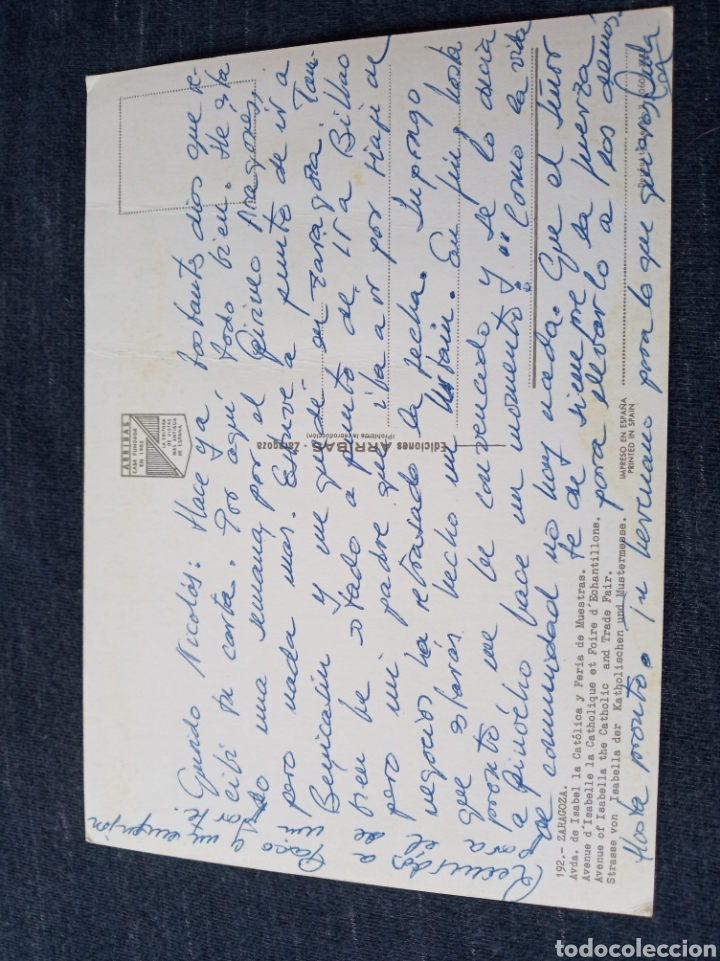 Querido Nicolás: Hace ya bastantes días que re-
cibí tu carta. Por aquí todo bien. He esta
do una semana por el Pirineo Aragonés,
pero nada mas. Estuve a punto de ir a
Benicasim y me quedé en Zaragoza. Tam-
bien he estado a punto de ir a Bilbao
pero mi padre que iba a ir por viaje de
negocios ha retrasado la fecha. Supongo
que estarás hecho un En fin, hasta
pronto me he convencado y se lo decía
a Pinocho hace un momento, "Como la vida
de comunidad no hay nada. Que el Señor
te dé siempre la fuerza
para llevarlo a los demás.
Hasta pronto. Tu hermano para lo que quieras
Recuerdos a
toda el de un
Paso y un
ARRIBAS
CASA FUNDADA
EN 1905
LA EDITORA
DE VISTAS
MAS ANTIGUA
DE ESPAÑA
Ediciones ARRIBAS - Zaragoza
(Prohibida la reproducción)
IMPRESO EN ESPAÑA
PRINTED IN SPAIN
192.- ZARAGOZA.
Avda. de Isabel la Católica y Feria de Muestras.
Avenue d'Isabelle la Catholique et Foire d'Echantillons.
Avenue of Isabella the Catholic and Trade Fair.
Strasse von Isabella der Katholischen und Mustermesse.
todocoleccion